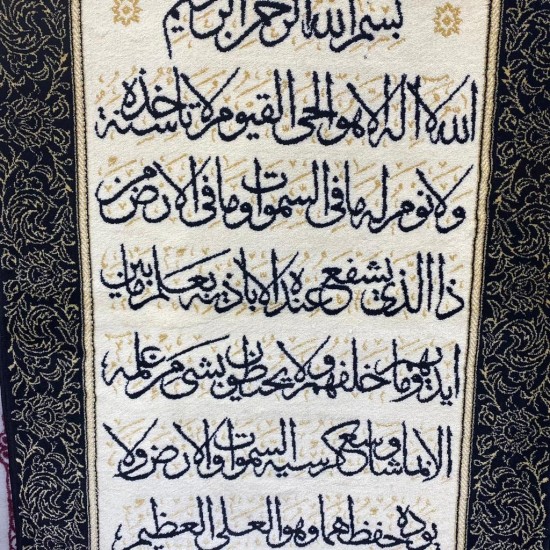 بسم الله الرحمن الرحيم
الله لا اله الا هو الحي القيوم لا تاخذه سنة
ولا نوم له ما في السموات وما في الارض من
ذا الذي يشفع عنده الا باذنه يعلم ما بين
ايديهم وما خلفهم ولا يحيطون بشئ من علمه
الا بما شاء وسع كرسيه السموات والارض ولا
يوده حفظهما وهو العلي العظيم